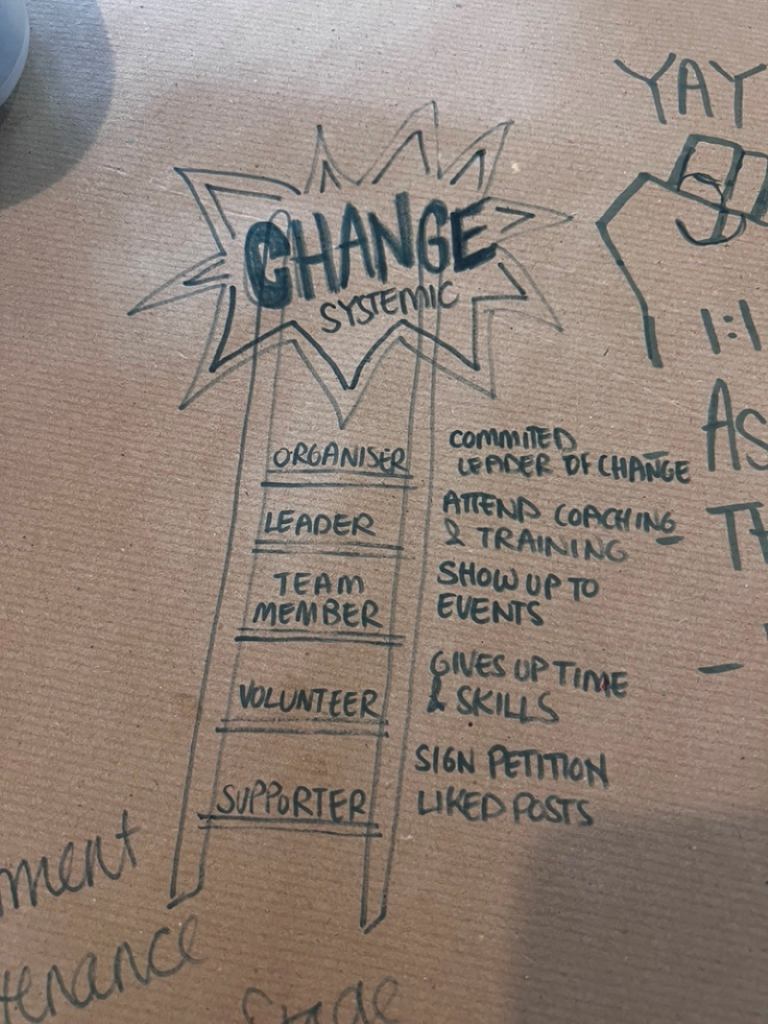 YAY
CHANGE
SYSTEMIC
1:1
ORGANISER
COMMITED
LEADER OF CHANGE
LEADER
ATTEND COACHING
& TRAINING
TEAM
MEMBER
SHOW UP TO
EVENTS
VOLUNTEER
GIVES UP TIME
& SKILLS
SUPPORTER
SIGN PETITION
LIKED POSTS